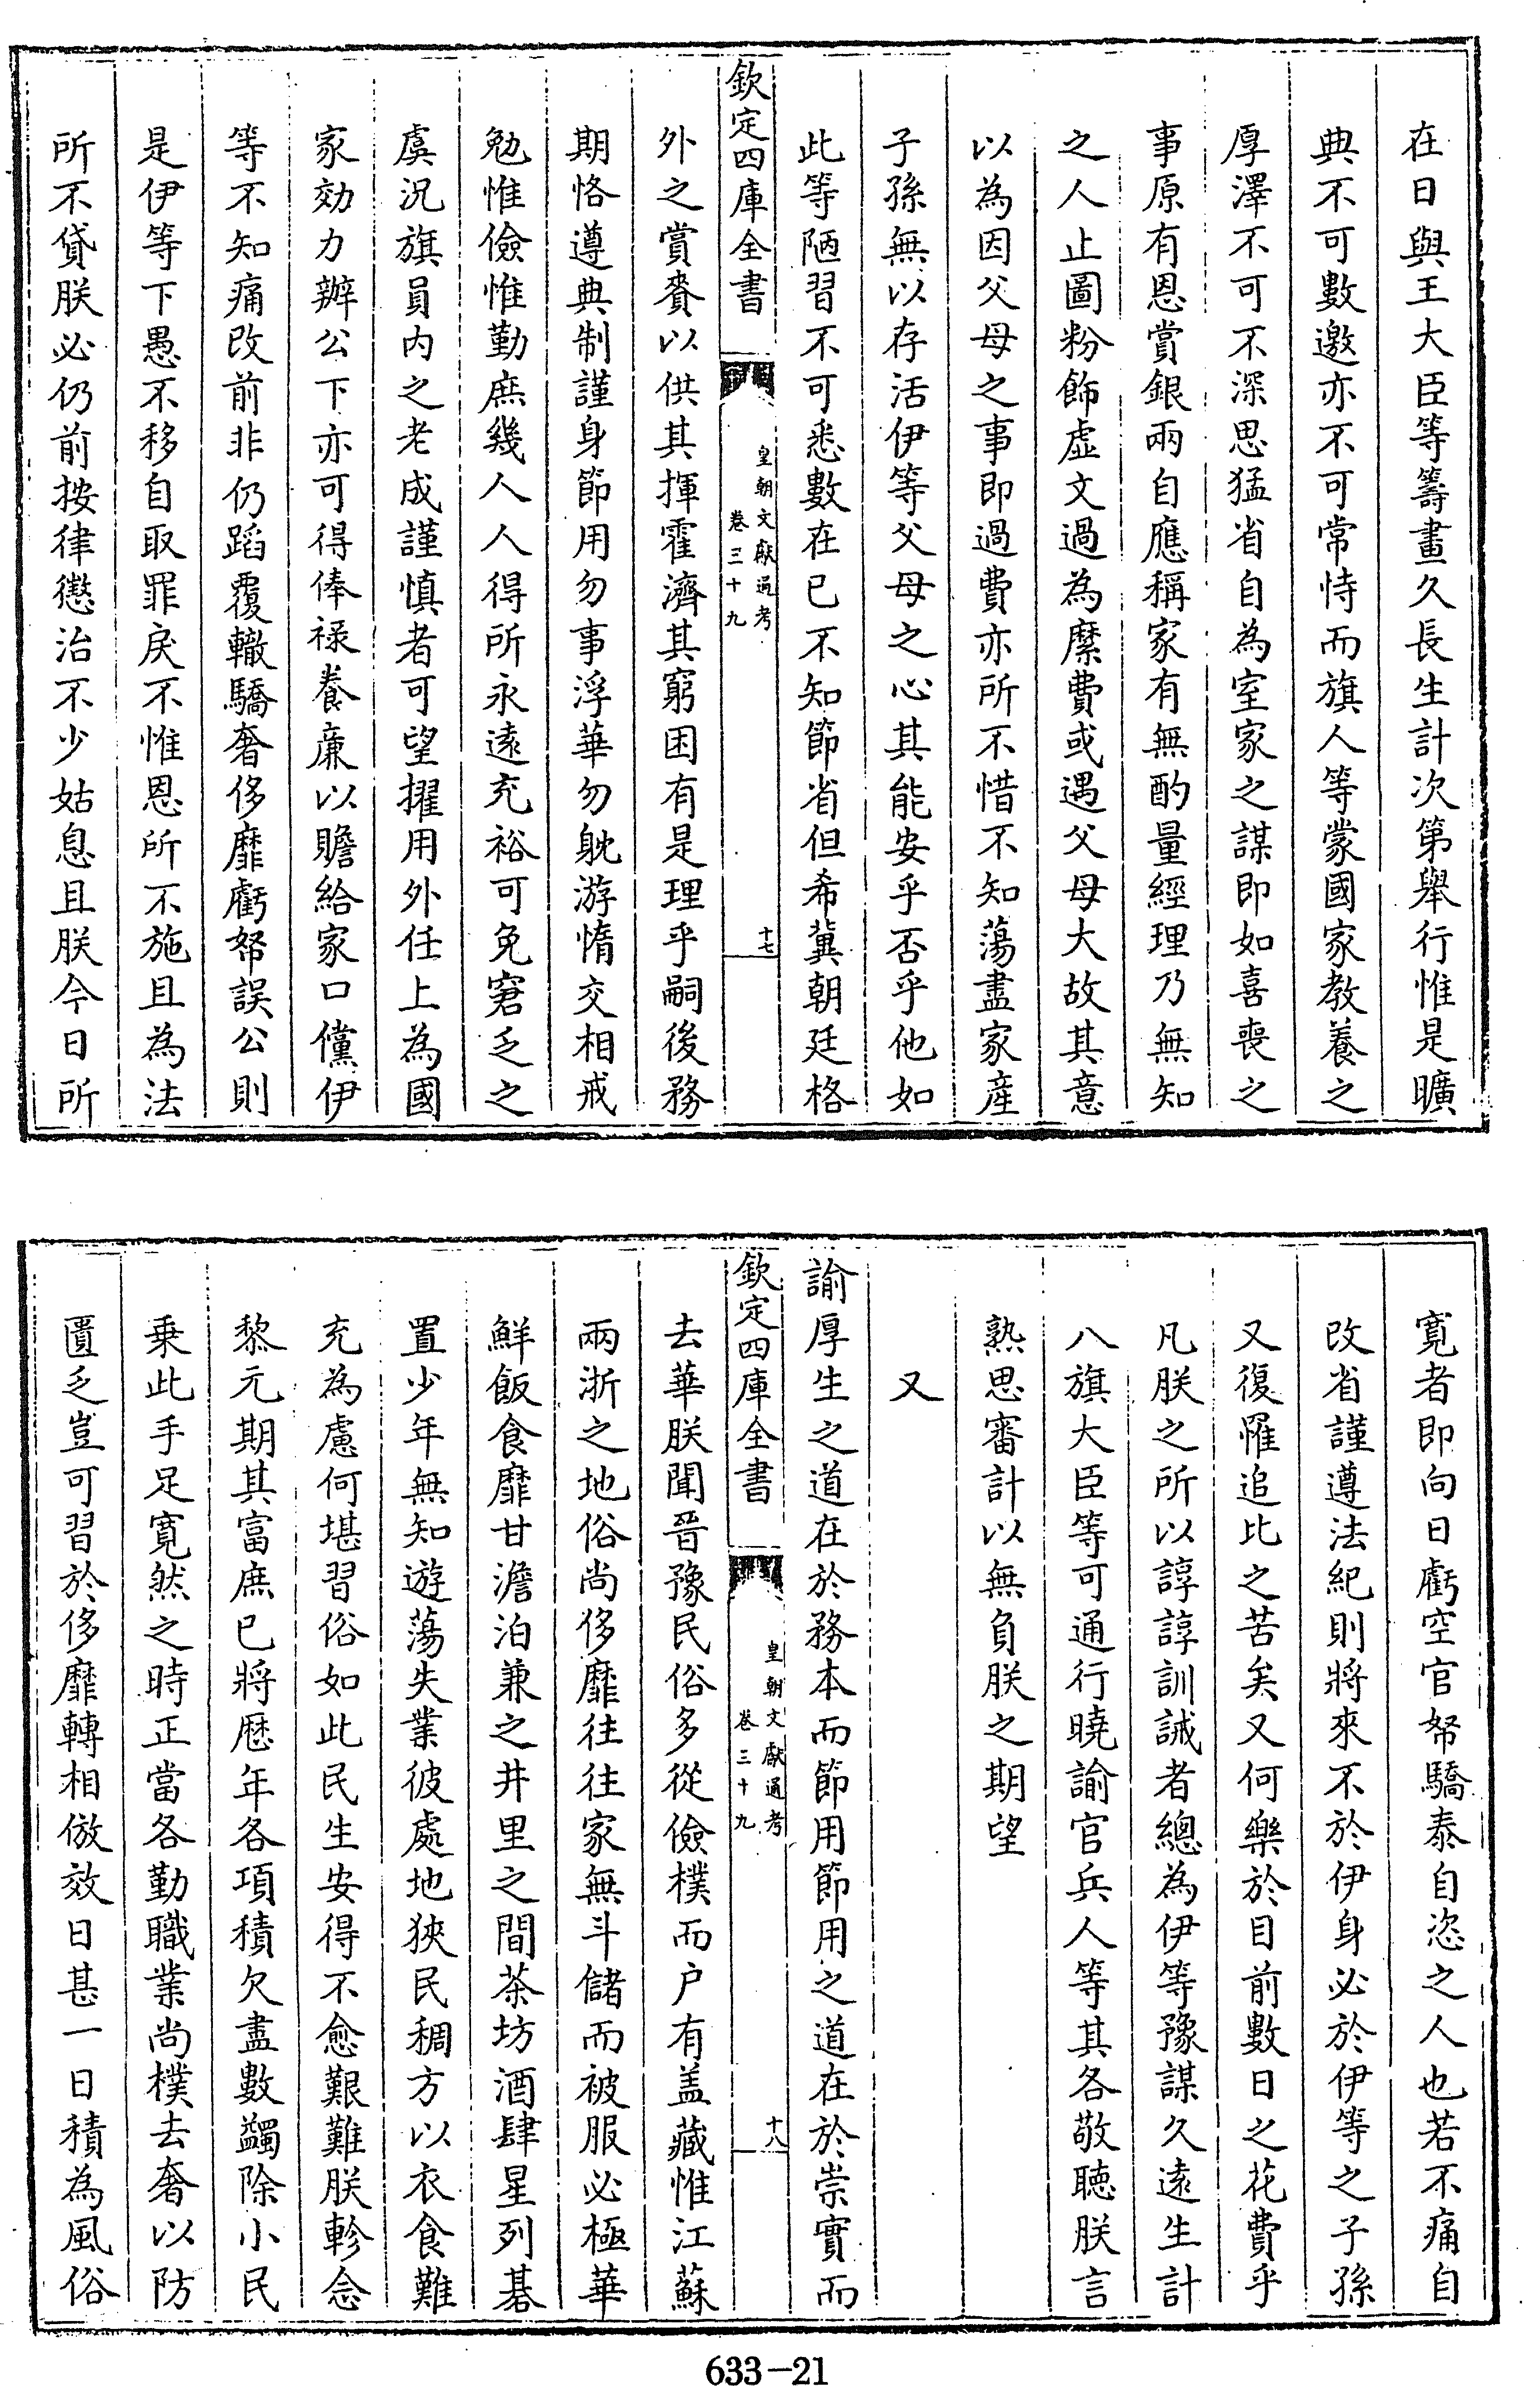 在日與王大臣等籌畫久長生計次第舉行惟是曠
典不可數邀亦不可常恃而旗人等蒙國家教養之
厚澤不可不深思猛省自為室家之謀即如喜喪之
事原有恩賞銀兩自應稱家有無酌量經理乃無知
之人止圖粉飾虛文過為縻費或遇父母大故其意
以為因父母之事即過費亦所不惜不知蕩盡家産
子孫無以存活伊等父母之心其能安乎否乎他如
此等陋習不可悉數在已不知節省但希冀朝廷格
欽定四庫全書
皇朝文獻通考
卷三十九
十七
外之賞賚以供其揮霍濟其窮困有是理乎嗣後務
期恪遵典制謹身節用勿事浮華勿躭游惰交相戒
勉惟儉惟勤庶幾人人得所永遠充裕可免窘乏之
虞況旗員内之老成謹慎者可望擢用外任上為國
家効力辦公下亦可得俸祿養廉以贍給家口儻伊
等不知痛改前非仍蹈覆轍驕奢侈靡虧帑誤公則
是伊等下愚不移自取罪戾不惟恩所不施且為法
所不貸朕必仍前按律懲治不少姑息且朕今日所
寛者即向日虧空官帑驕泰自恣之人也若不痛自
改省謹遵法紀則將來不於伊身必於伊等之子孫
又復罹追比之苦矣又何樂於目前數日之花費乎
凡朕之所以諄諄訓誡者總為伊等豫謀久遠生計
八旗大臣等可通行曉諭官兵人等其各敬聴朕言
熟思審計以無負朕之期望
又
諭厚生之道在於務本而節用節用之道在於崇實而
欽定四庫全書
皇朝文獻通考
卷三十九
十八
去華朕聞晉豫民俗多從儉樸而户有盖藏惟江蘇
兩浙之地俗尚侈靡往往家無斗儲而被服必極華
鮮飯食靡甘澹泊兼之井里之間茶坊酒肆星列碁
置少年無知遊蕩失業彼處地狹民稠方以衣食難
充為慮何堪習俗如此民生安得不愈艱難朕軫念
黎元期其富庶已將歴年各項積欠盡數蠲除小民
乗此手足寛然之時正當各勤職業尚樸去奢以防
匱乏豈可習於侈靡轉相倣效日甚一日積為風俗
633-21